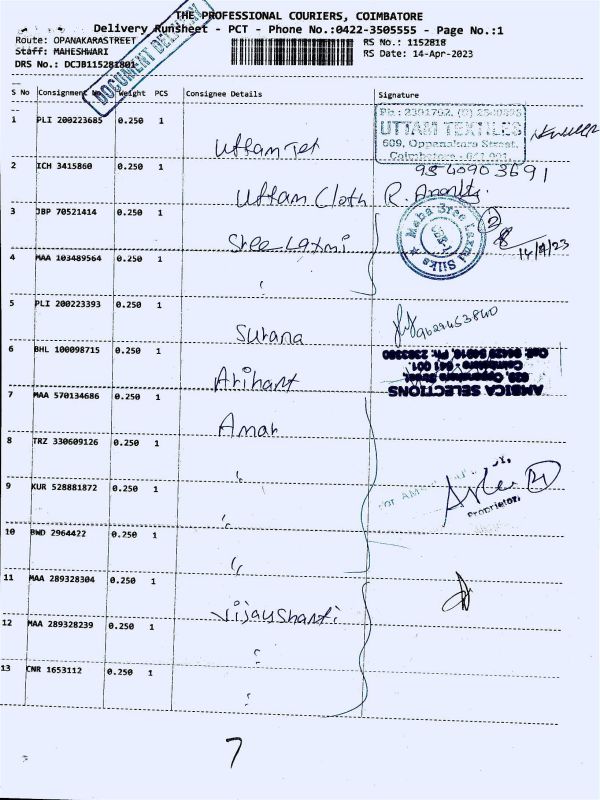 THE PROFESSIONAL COURIERS, COIMBATORE
Delivery Runsheet - PCT - Phone No.:0422-3505555 - Page No.:1
Route: OPANAKARASTREET
RS No.: 1152818
Staff: MAHESHWARI
RS Date: 14-Apr-2023
DRS No.: DCJB115281801
DOCUMENT DELIVERY
S No Consignment Weight PCS Consignee Details Signature
1 PLI 200223685 0.250 1 Uttam Tex
Ph : 2391762, (R) 2560895
UTTAM TEXTILES
609, Oppanakara Street,
Coimbatore - 641 001.
2 ICH 3415860 0.250 1 Uttam Cloth
3 JBP 70521414 0.250 1 Shree Laxmi
Maha Sree Laxmi Silks
CBE-1
14/4/23
4 MAA 103489564 0.250 1 "
5 PLI 200223393 0.250 1 Surana
9629453840
6 BHL 100098715 0.250 1 Arihant
AMBICA SELECTIONS
629, Oppanakara Street,
Coimbatore 641 001.
7 MAA 570134686 0.250 1 Amar
8 TRZ 330609126 0.250 1 "
9 KUR 528881872 0.250 1 "
Proprietor
10 BWD 2964422 0.250 1 "
11 MAA 289328304 0.250 1 Vijayshanti
12 MAA 289328239 0.250 1 "
13 CNR 1653112 0.250 1 "
7